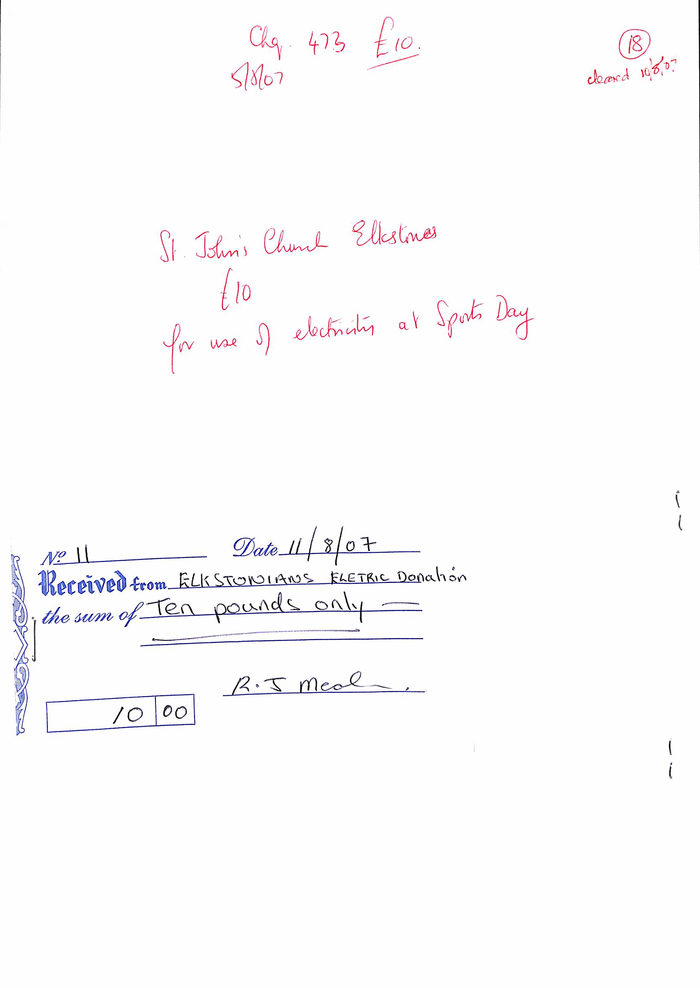 Chq. 473 £10.
5/8/07
18
cleared 10/8/07
St. John's Church Elkstones
£10
for use of electricity at Sports Day
No 11 Date 11/8/07
Received from ELKSTONIANS ELETRIC Donation
the sum of Ten pounds only
R. J
10 00